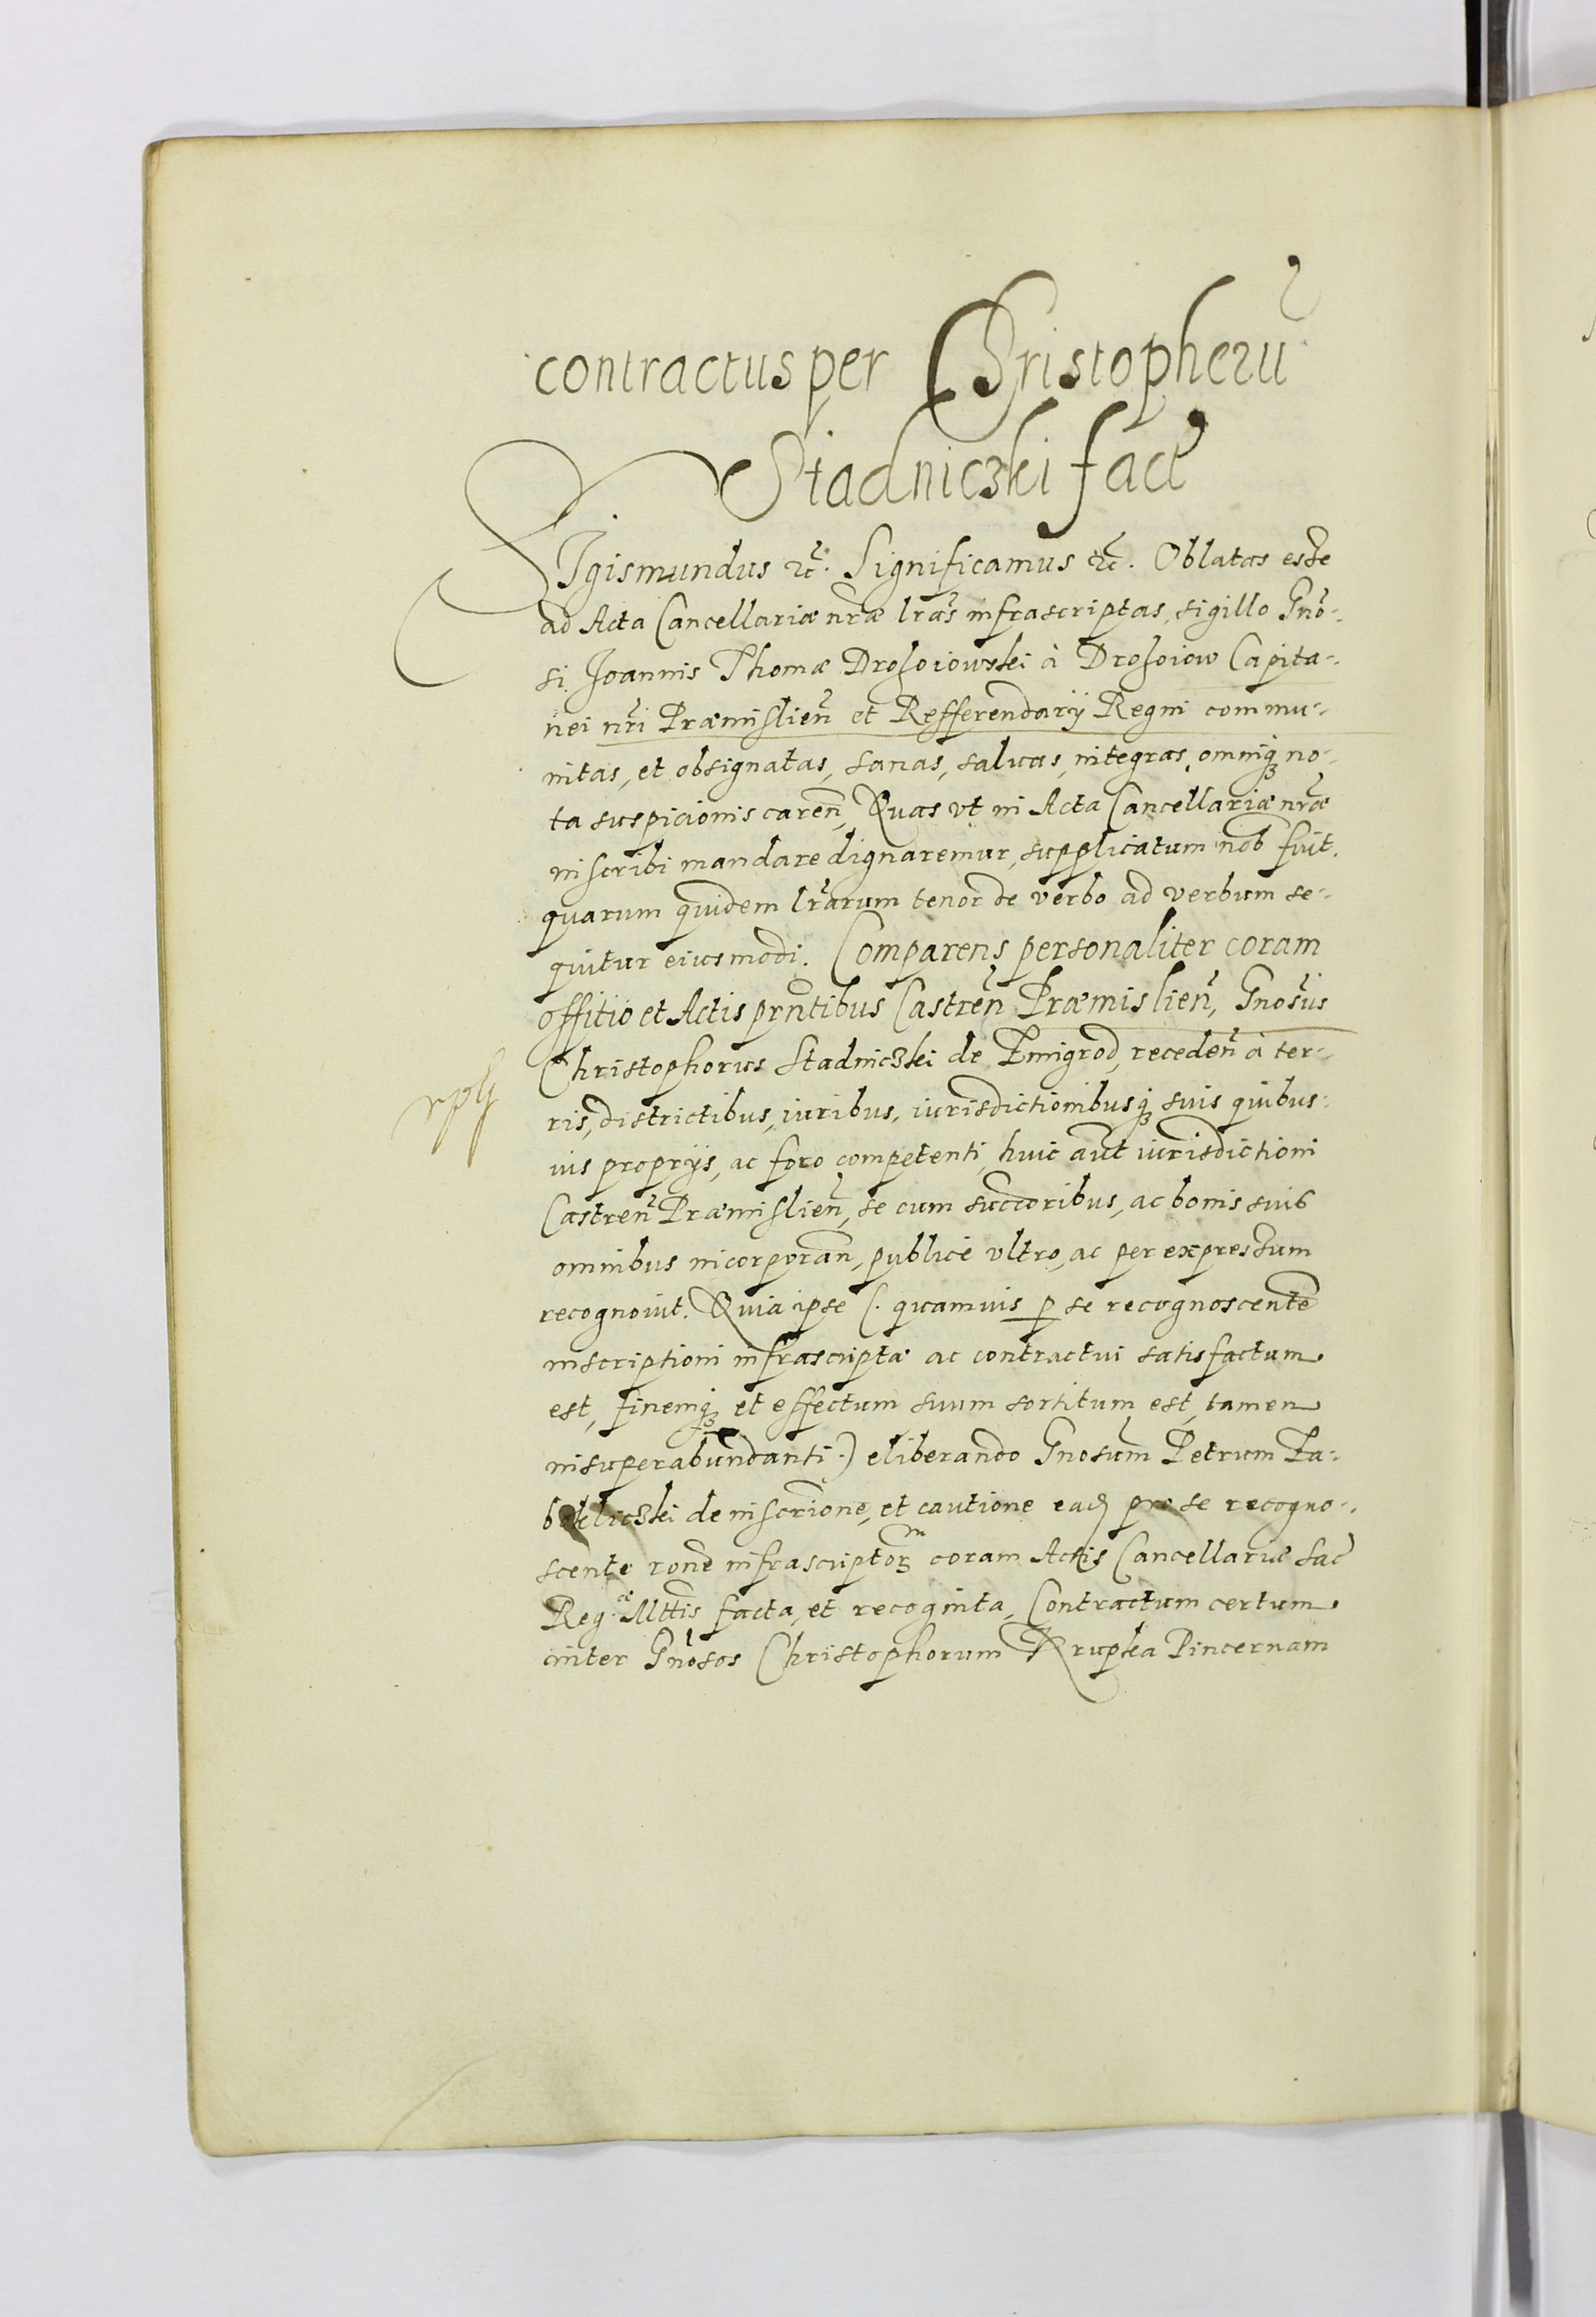 contractus per Christopherū
Stadniczki fact
SIgismundus etc. Significamus etc. Oblatas esse
ad Acta Cancellariæ nr̃æ lr̃as infrascriptas, sigillo Gnõ-
si Joannis Thomæ Drohoiowski à Drohoiow Capita-
nei nr̃i Præmislień et Refferendarij Regni commu-
nitas, et obsignatas, sanas, saluas, integras, omniq3 no-
ta suspicionis careñ, Quas vt in Acta Cancellariæ nr̃æ
inscribi mandare dignaremur, supplicatum nob̃ fuit.
quarum quidem lr̃arum tenor de verbo ad verbum se-
quitur eiusmodi. Comparens personaliter coram
offitio et Actis prñtibus Castreñ Præmislień, Gnosus
Christophorus Stadniczki de Zmigrod, recedeñ à ter-
ris, districtibus, iuribus, iurisdictionibusq3 suis quibus-
uis proprijs, ac foro competenti, huic aũt iurisdictioni
Castreñ Præmislień, se cum succoribus, ac bonis suis
omnibus incorporañ, publicè vltro, ac per expressum
recognouit. Quia ipse (. quamuis p se recognoscente
inscriptioni infrascriptæ ac contractui satisfactum
est, finemq3 et effectum suum sortitum est, tamen
in superabundanti .) eliberando Gnosum Petrum Za-
bokliczki de inscrione, et cautione eadem pro se recogno-
scente rone infrascriptor3 coram Actis Cancellariæ Sac
Regæ Mttis facta, et recognita, Contractum certum
inter Gnosos Christophorum Krupka Pincernam